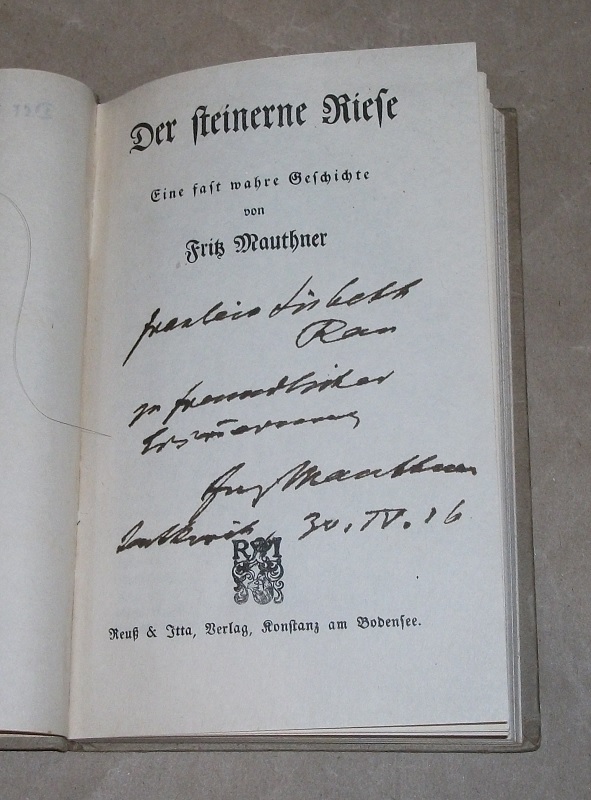 Der steinerne Riese
Eine fast wahre Geschichte
von
Fritz Mauthner
Fräulein Lisbeth
Rau
zu freundlicher
Erinnerung
Fritz Mauthner
30. IV. 16
R I
Reuß & Itta, Verlag, Konstanz am Bodensee.